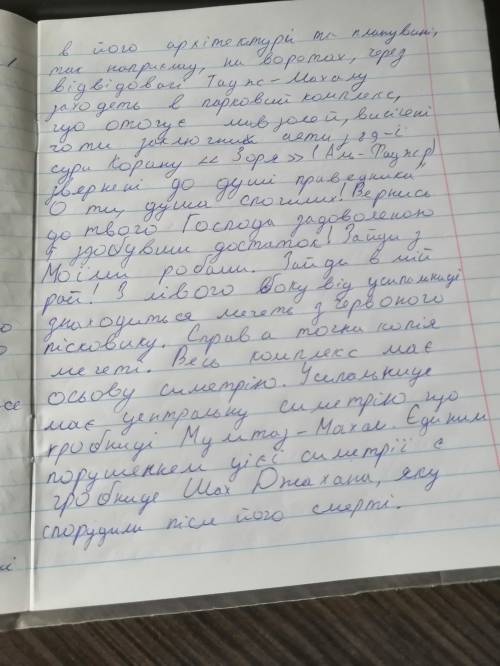 в його архітектурі та плануванні,
так наприклад, на воротах, через
відвідовачі Таджс-Махалу
заходять в парковий комплекс,
що оточує мавзолей, висічені
чоти заключних аяти, 89-ї
сури Корану «Зоря» (Ал-Фаджр)
звернені до душі праведника"
О ти, душа спочилих! Вернись
до твого Господа задоволеною
й здобувши достаток! Зайди з
Моїми робами. Зайди в мій
рай! З лівого боку від усипальниці
знаходиться мечеть з червоного
пісковику. Справа точна копія
мечеті. Весь комплекс має
осьову симетрію. Усипальнице
має центральну симетрію що
гробниці Мумтаз-Махал. Єдиним
порушенням цієї симетрії є
гробнице Шах Джахана, яку
спорудили після його смерті.